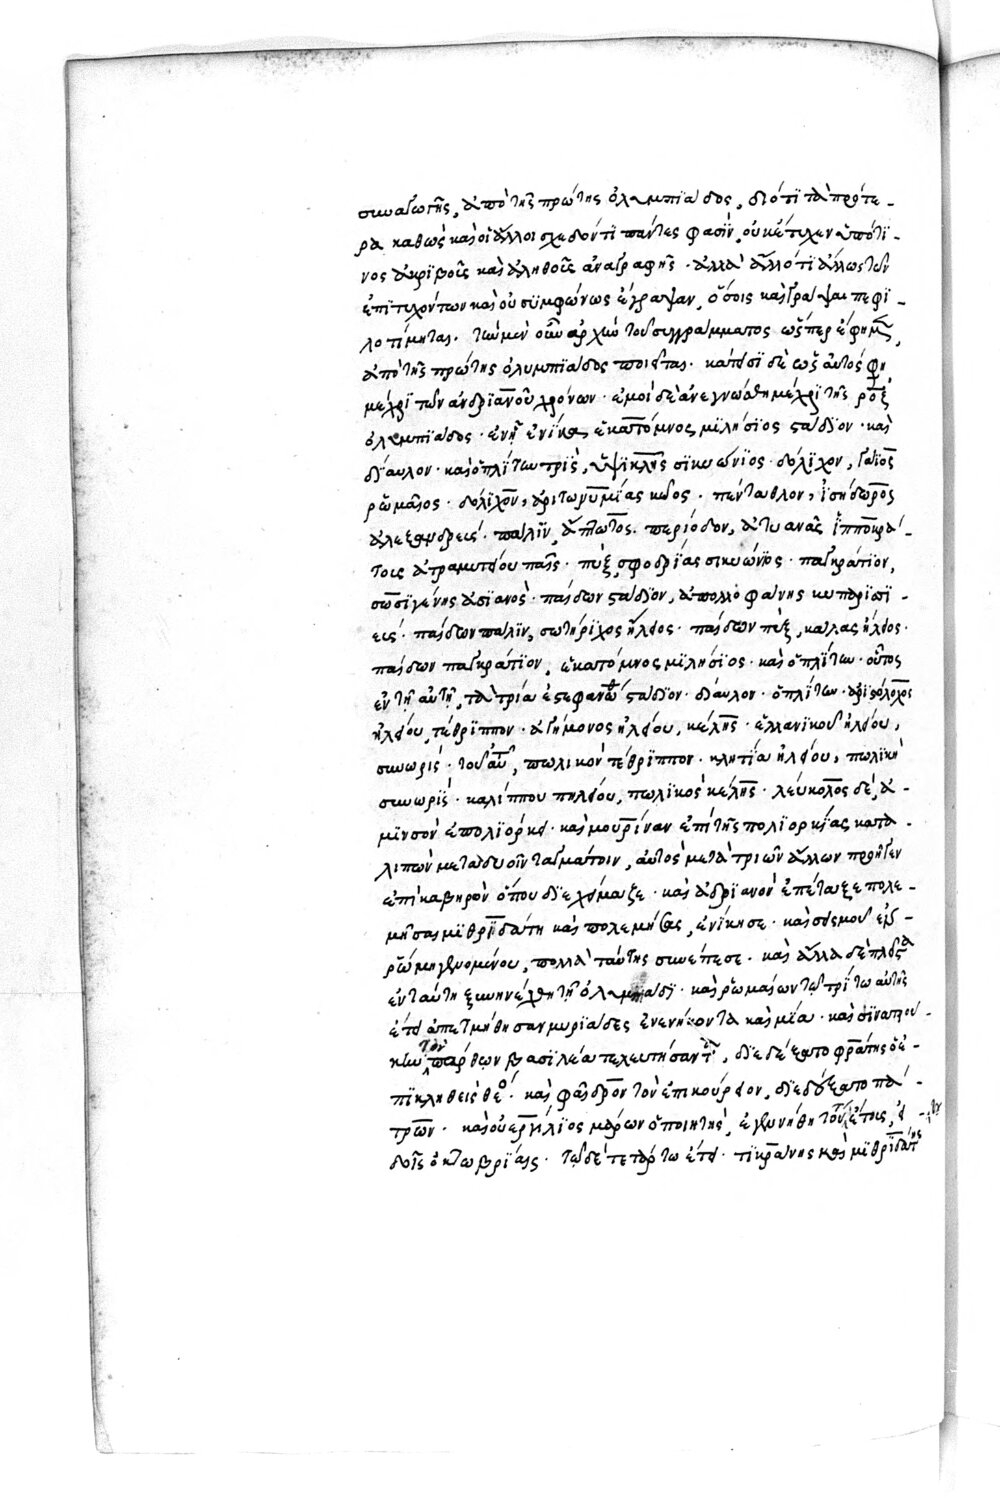 συναγωγῆς, ἀπὸ τῆς πρώτης ὀλυμπϊάδος, διότϊ τὰ πρότε -
ρα καθὼς καὶ οἱ ἄλλοι σχεδόν τϊ πάντες φασϊν, οὐκ ἔτυχεν ὑπό τϊ -
νος ἀκρϊβοῦς καὶ ἀληθοῦς ἀναγραφῆς · ἀλλὰ ἄλλό τϊ ἄλλως τῶν
ἐπϊτυχόντων καὶ οὐ σϋμφώνως ἔγραψαν, ὅσοις καὶ γράψαι πεφϊ -
λοτίμηται. τὸ μὲν οὖν ἀρχὴν τοῦ συγγράμματος ὥσπερ ἔφημεν,
ἀπὸ τῆς πρώτης ὀλυμπϊάδος ποιεῖται. κάτεισϊ δὲ ὡς αὐτός φη
μέχρϊ τῶν ἀνδρϊανοῦ χρόνων · ἐμοὶ δὲ ἀνεγνώσθη μέχρϊ τῆς ροζ
ὀλυμπϊάδος · ἐν ᾗ ἐνίκα ἑκατόμνος μϊλήσϊος στάδϊον · καὶ
δίαυλον · καὶ ὁπλίτην τρὶς, ὑψϊκλῆς σϊκυώνϊος · δόλϊχον, γάϊος
ρωμαῖος · δόλϊχον, ἀρϊστωνυμίδας κῶος · πένταθλον, ἰσήδωρος
ἀλεξανδρεὺς · πάλϊν, ἄπτωτος. περίοδον, ἀτυανᾶς ἱπποκρά -
τους ἀτραμυτείου παῖς · πὺξ, σφοδρίας σικυώνϊος · παγκράτϊον,
σωσϊγένης ἀσϊανὸς · παίδων στάδϊον, ἀπολλοφάνης κυπαρϊσϊ -
εὺς · παίδων πάλϊν, σωτήρϊχος ἠλεῖος · παίδων πὺξ, κάλας ἠλεῖος ·
παίδων παγκράτϊον, ἑκατόμνος μϊλήσϊος · καὶ ὁπλίτην · οὗτος
ἐν τῇ αὐτῇ, τὰ τρία ἐστεφανώθη στάδϊον · δίαυλον · ὁπλίτην · ἀρϊστόλοχος
ἠλείου, τέθρϊππον · ἁγήμονος ἠλείου, κέλης · ἑλλανίκου ἠλείου,
συνωρὶς · τοῦ αὐτοῦ, πωλικὸν τέθρϊππον · κλητία ἠλείου, πωλϊκὴ
συνωρὶς · καλίππου πηλείου, πωλϊκὸς κέλης · λεύκολος δὲ, ἀ -
μϊνσὸν ἐπολϊόρκει · καὶ μουρίναν ἐπὶ τῆς πολϊορκίας κατα -
λϊπὼν μετὰ δυοῖν ταγμάτοιν, αὐτὸς μετὰ τρϊῶν ἄλλων προῆγεν
ἐπὶ καβηρὸν ὅπου δϊεχείμαξε · καὶ ἀδρϊανὸν ἐπέταξε πολε -
μῆσαι μϊθρϊδάτῃ καὶ πολεμήσας, ἐνίκησε · καὶ σεισμοῦ ἐν
ρώμῃ γενομένου, πολλὰ ταύτης συνέπεσε · καὶ ἄλλα δὲ πλεῖστα
ἐν ταύτῃ ξυνηνέχθη τῇ ὀλυμπϊάδϊ · καὶ ρωμαίων τῷ τρίτῳ αὐτῆς
ἔτει ἀπετμήθησαν μυρϊάδες ἐνενήκοντα καὶ μία · καὶ σϊνατρού -
κην τὸν πάρθων βασϊλέα τελευτήσαντα, δϊεδέξατο φραάτης ὁ ἐ -
πϊκληθεὶς θεὸς · καὶ φαῖδρον τὸν ἐπικούρειον, δϊεδέξατο πά -
τρων · καὶ οὐεργίλϊος μάρων ὁ ποιητὴς, ἐγεννήθη τούτου τοῦ ἔτους, εἰ -
δοῖς ὀκτωβρίαις · τῷ δὲ τετάρτῳ ἔτει · τϊγράνης καὶ μϊθρϊδάτης